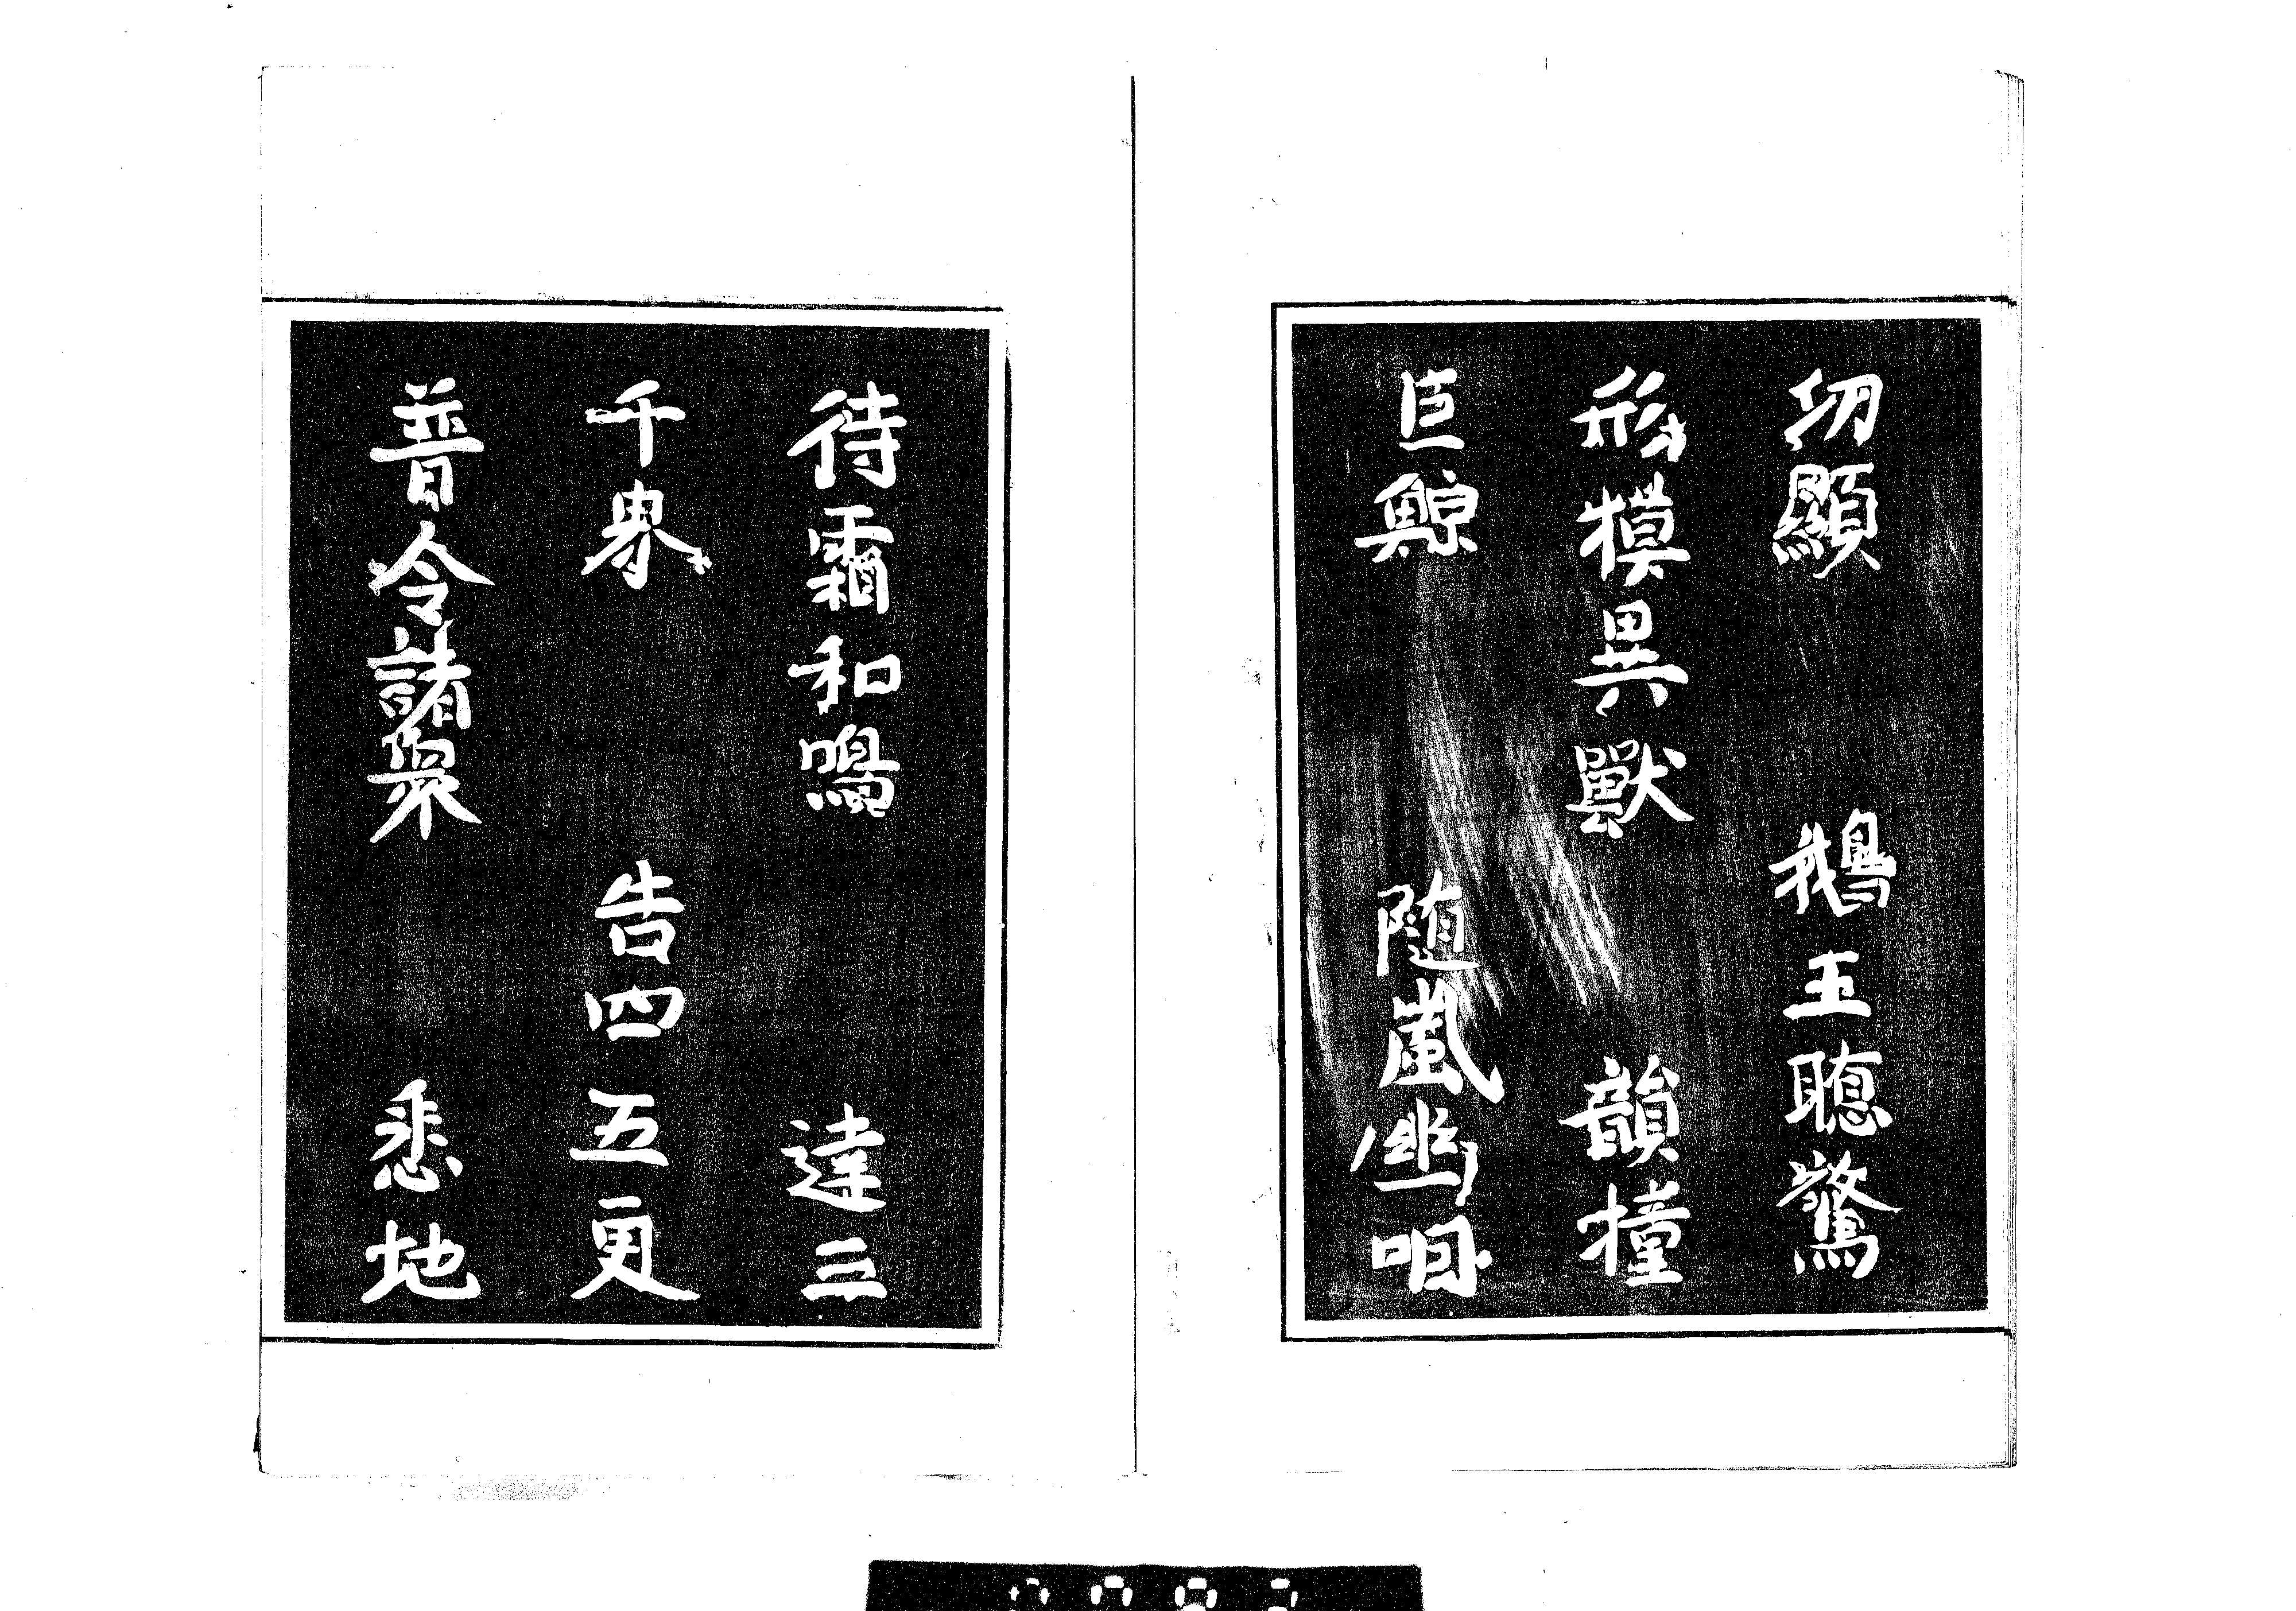 功顯 鵝王聰驚
形摸異獸 韻撞
巨鯨 隨嵐幽咽
待霜和鳴 達三
千界 告四五更
普令諸衆 悉地